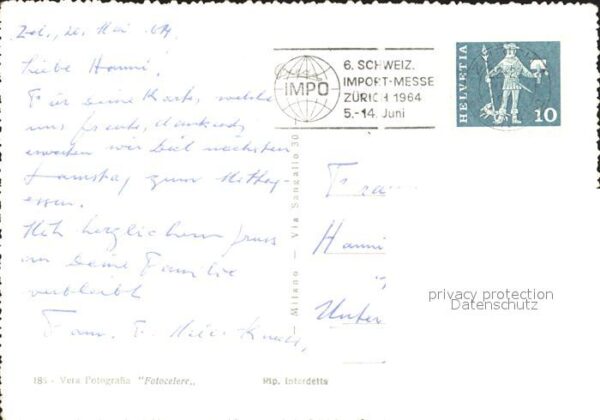 Mai 64
Liebe Hanni,
Für deine Karte, welche
uns freute, dankend,
erwarten wir Dich nächsten
Samstag zum Mittag-
essen.
Mit herzlichem Gruss
an deine Familie
verbleibt
Fam.
6. SCHWEIZ.
IMPORT-MESSE
ZÜRICH 1964
5.-14. Juni
IMPO
HELVETIA
10
— Milano — Via Sangallo 30
Frau
Hanni
"
Unter
privacy protection
Datenschutz
185 - Vera Fotografia "Fotocelere„
Rip. interdetta